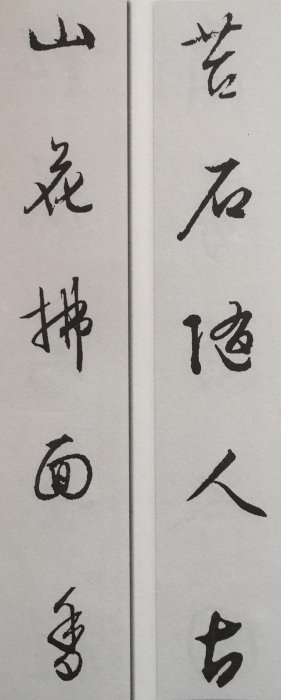 苔石随人古
山花拂面香